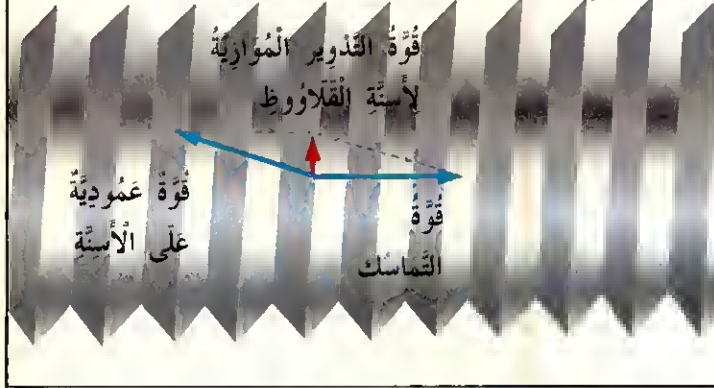 قُوَّةُ التَّدْوِيرِ الْمُوَازِيَةُ
لِأَسِنَّةِ الْقَلَاوُوظِ
قُوَّةٌ عَمُودِيَّةٌ
عَلَى الْأَسِنَّةِ
قُوَّةُ
التَّمَاسُك